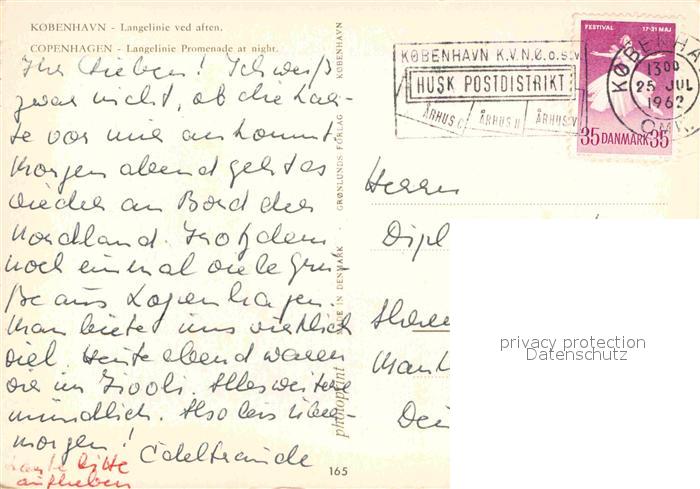 KØBENHAVN - Langelinie ved aften.
COPENHAGEN - Langelinie Promenade at night.
Ihr Lieben! Ich weiß
zwar nicht, ob die Kar-
te vor mir ankommt.
Morgen abend geht es
wieder an Bord der
Nordland. Trotzdem
noch einmal viele Grü-
ße aus Kopenhagen.
Man bietet uns wirklich
viel. Heute abend waren
wir im Tivoli. Alles weitere
mündlich. Also bis über-
morgen!
Edeltraude
Karte bitte
aufheben
photoprint MADE IN DENMARK - GRØNLUNDS FORLAG - KØBENHAVN
165
KØBENHAVN K.V.N.Ø.o.s.v.
HUSK POSTDISTRIKT
ÅRHUS C ÅRHUS N ÅRHUS V
KØBENHA
1300
25 JUL
1962
OMK.
FESTIVAL 17-31 MAJ
35 DANMARK 35
Herrn
Dipl
Dei
privacy protection
Datenschutz